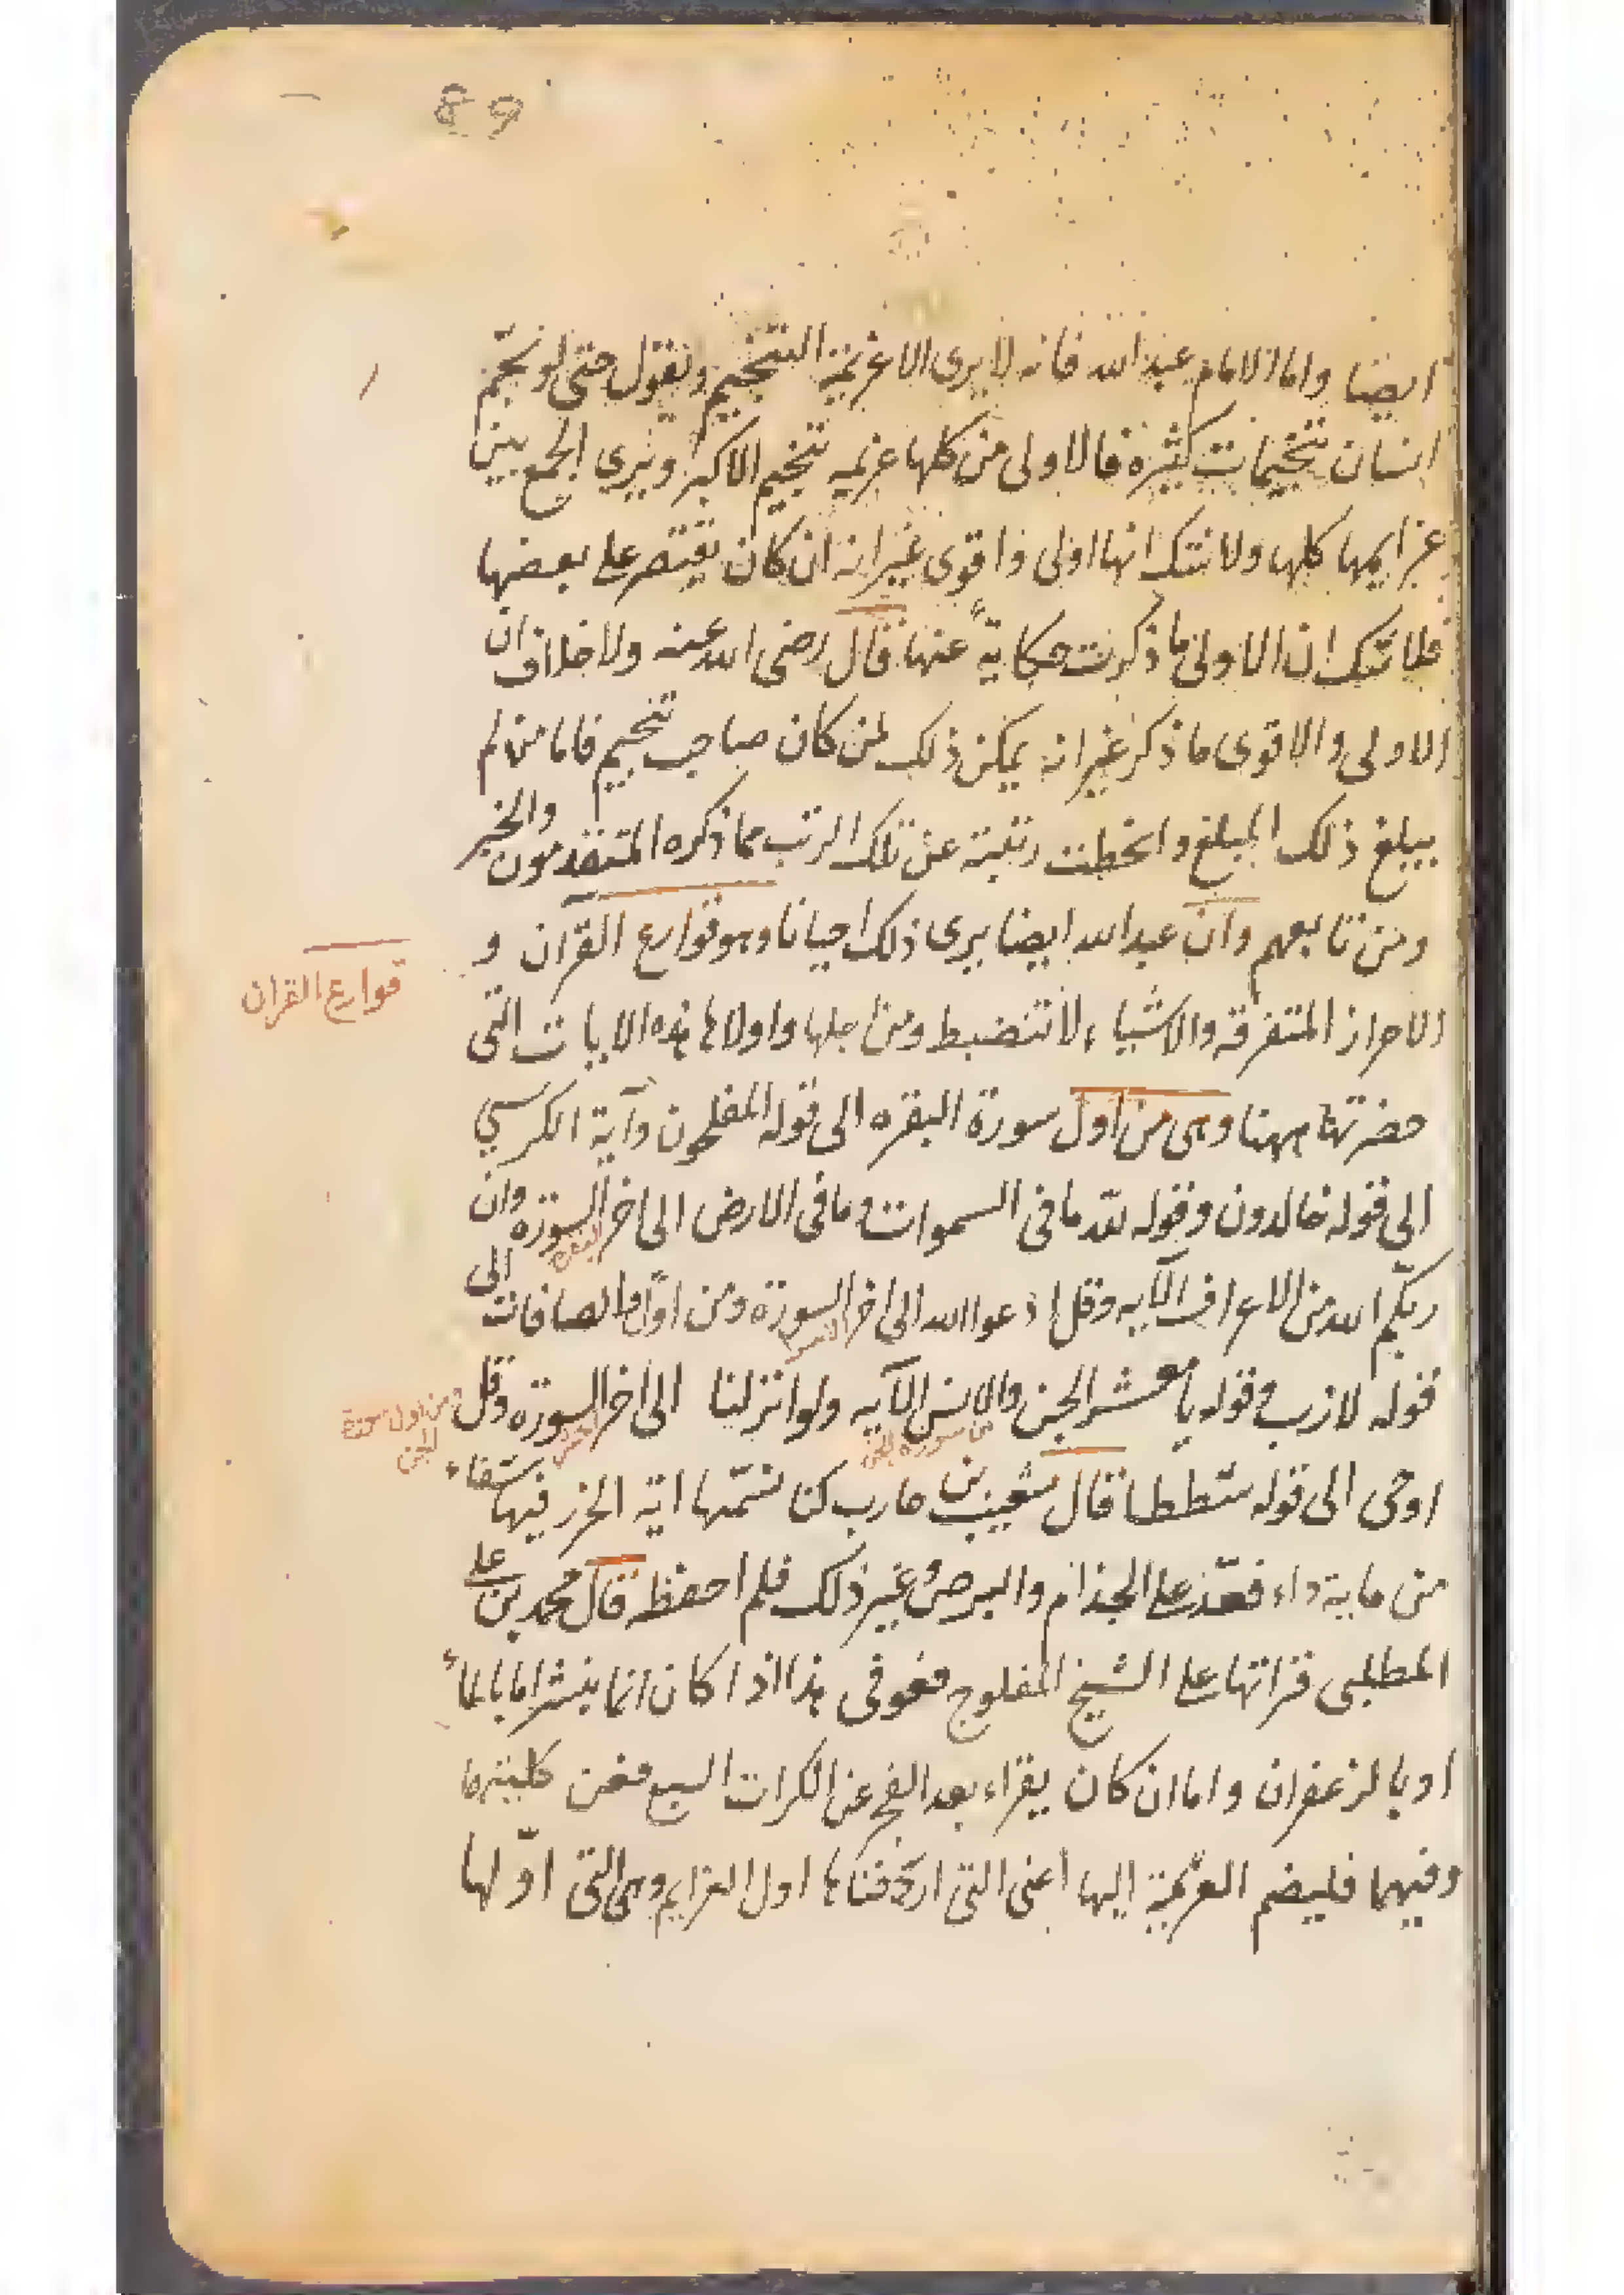 89
ايضا واما الامام عبد الله فانه لا يرى الا عزيمة التنجيم ويقول حتى لو نجّم
انسان تنجيمات كثيره فالاولى من كلها عزيمه تنجيم الاكبر ويرى الجمع بين
عزايمها كلها ولا شك انها اولى واقوى غير انه ان كان يقتصر على بعضها
فلا شك ان الاولى ما ذكرت حكايةً عنها قال رضى الله عنه ولا خلاف ان
الاولى والاقوى ما ذكر غير انه يمكن ذلك لمن كان صاحب تنجيم فاما من لم
يبلغ ذلك المبلغ وانحطت رتبته عن تلك الرتب مما ذكره المتقدمون والخير
ومن تابعهم وان عبد الله ايضا يرى ذلك احيانا وهو قوارع القرآن و
قوارع القران
الاحراز المتفرقه والاشياء لا تنضبط ومن اجلها واولاها هذه الايات التى
حضرتها ههنا وهى من اول سورة البقره الى قوله المفلحون وآية الكرسي
الى قوله خالدون وقوله لله ما فى السموات وما فى الارض الى اخر السورة وان
البقره
ربكم الله من الاعراف الآيه وقل ادعوا الله الى اخر السورة ومن اول والصافات الى
قوله لازب وقوله يا معشر الجن والانس الآيه ولو انزلنا الى اخر السورة وقل
من اول سورة الجن
اوحى الى قوله شططا قال شعيب بن حارب كنا نسمّها اية الحرز فيها شفاء
من ماية داء فعدّ على الجذام والبرص وغير ذلك فلم احفظه قال محمد بن على
المطلبى قراتها على الشيخ المفلوج فعوفى هذا اذا كان انما ينشر اما بالماء
او بالزعفران واما ان كان يقراء بعد الفرع عن الكرات السبع فمن
وفيهما فليضم العزيمة اليها اعنى التى اول العزايم وهى التى اوّلها